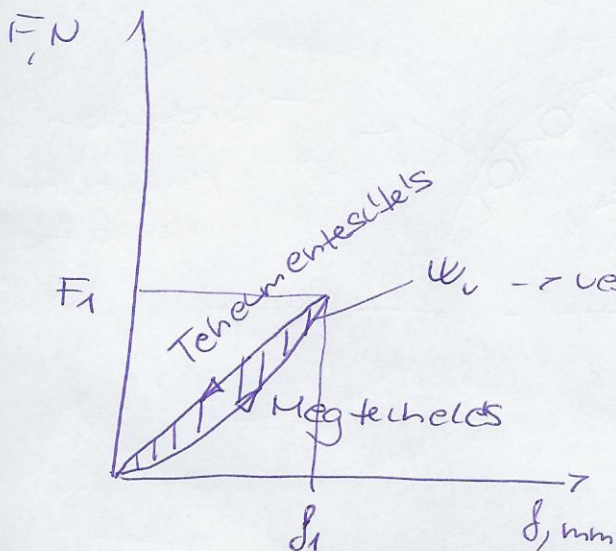 F, N
Tehermentesítés
F₁
Wᵥ → ve
Megterhelés
f₁
f, mm